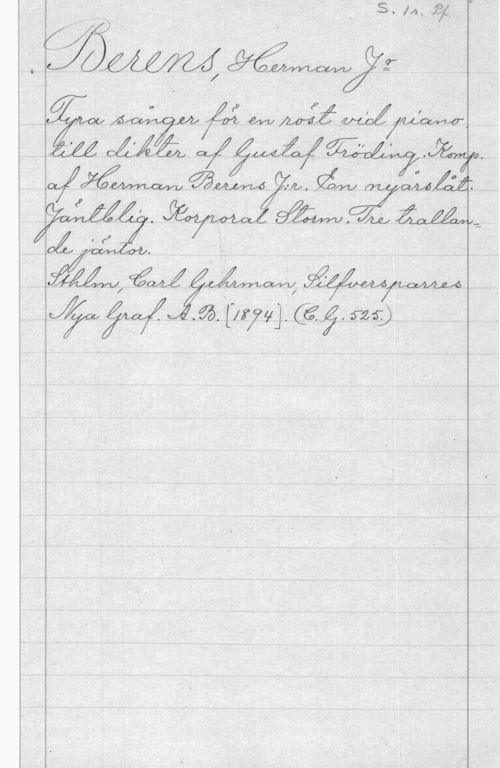 S. 1 r. Pf.
Berens, Herman Jr
Fyra sånger för en röst vid piano
till dikter af Gustaf Fröding. Komp.
af Herman Berens J:r. En nyårslåt.
Jäntblig. Korporal Storm. Tre trallan-
de jäntor.
Sthlm, Carl Gehrman, Silfversparres
Nya Graf. A.B. [1894]. (C. G. 525.)